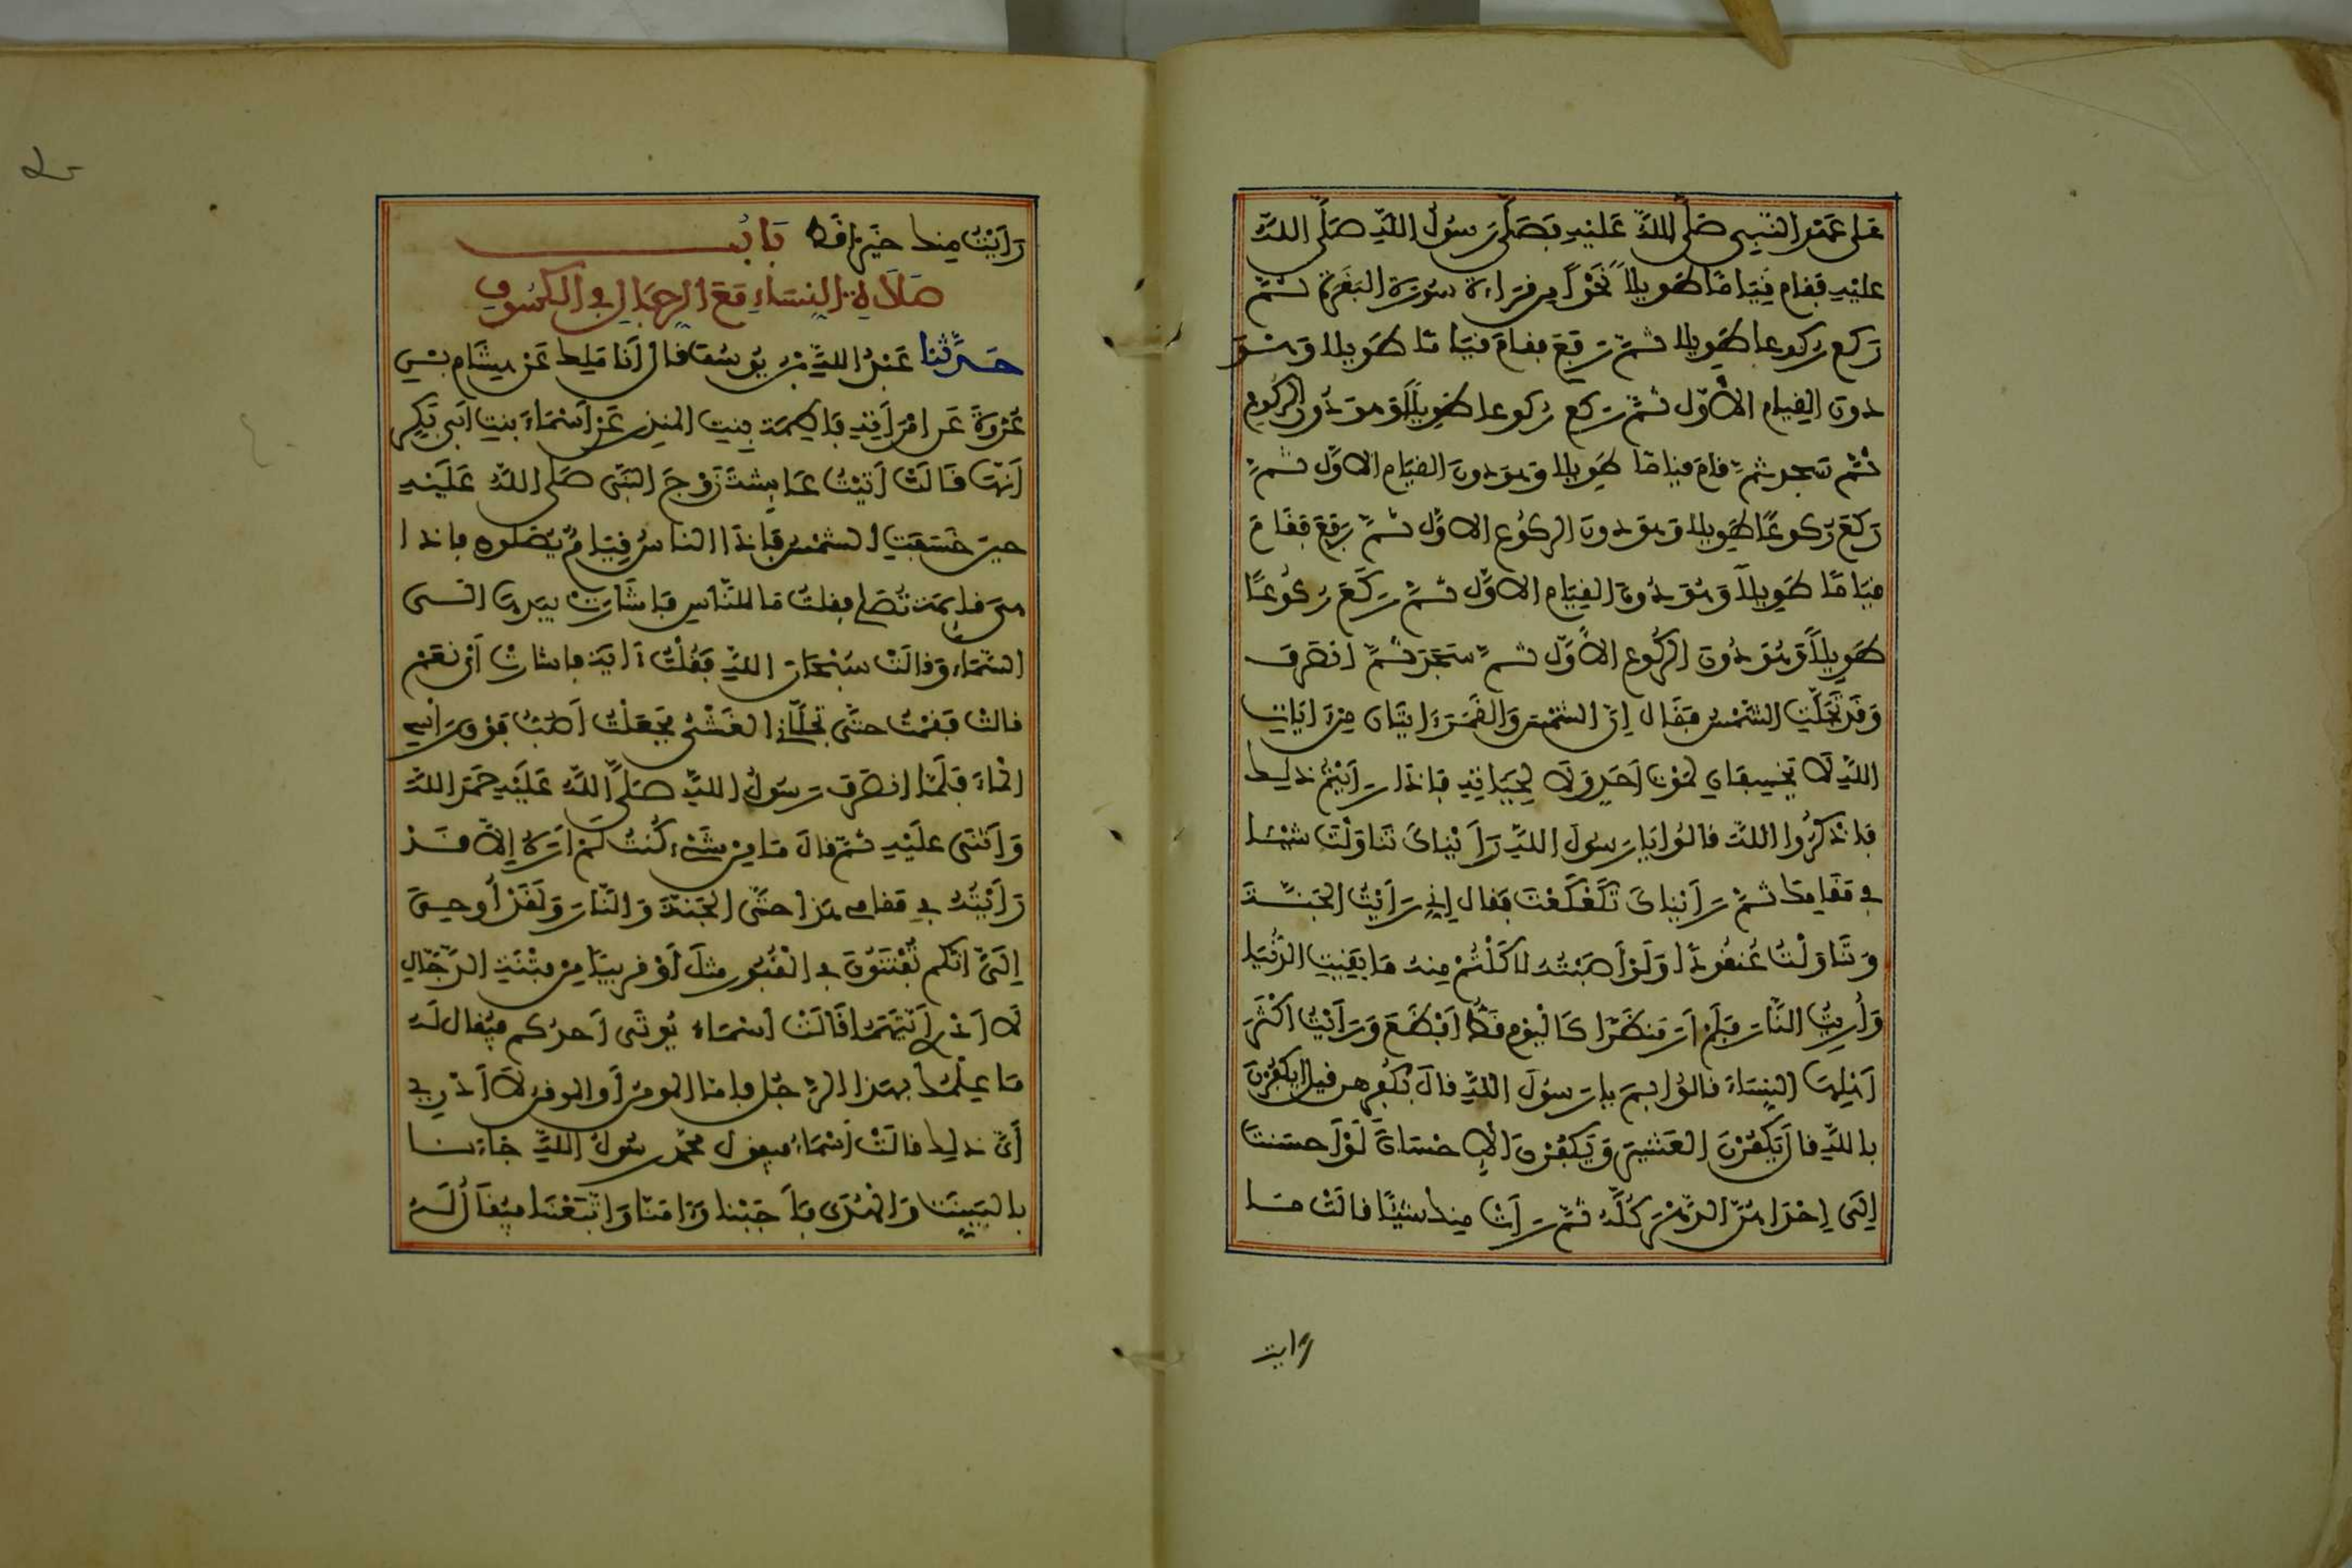 على عهد النبي صَلَّى اللهُ عَلَيْهِ فَصَلَّى رَسُولُ اللهِ صَلَّى اللهُ
عليْهِ فقام قِيَامًا طَوِيلاً نَحْوًا مِن قِرَاءَةِ سُورَةِ البَقَرَةِ ثُمَّ
رَكع ركوعا طَوِيلا ثمّ رَفعَ فقامَ قيَامًا طَوِيلا وَهْوَ
دونَ القيام الأوّل ثمّ ركع رُكوعا طوِيلًا وَهوَ دُون الركُوع
ثُمّ سَجد ثمّ قامَ قيامًا طَوِيلا وَهوَ دونَ القيَام الاوَّل ثمَّ
رَكعَ رُكوعًا طَوِيلا وَهوَ دونَ الركُوع الاوَّل ثمَّ رَفعَ فقَامَ
قيَامًا طَوِيلًا وَهُوَ دُونَ القِيَام الاوَّل ثمَّ رَكَعَ رُكُوعًا
طَوِيلًا وَهُوَ دُونَ الركُوع الأوّل ثمَّ سَجَدَ ثمَّ انصَرَفَ
وَقَد تَجَلَّتِ الشّمْسُ فَقَال إنّ الشّمْسَ وَالقَمَرَ ءَايتَانِ مِنَ ايَاتِ
اللهِ لَا يخسِفَانِ لمَوْتِ أحَدٍ وَلَا لِحَيَاتِهِ فإذا رَأيْتُم ذلِك
فاذكُرُوا اللهَ قالُوا يَا رَسُولَ اللهِ رَأيْنَاكَ تَنَاوَلْتَ شيْئا
في مَقَامِكَ ثمّ رَأيْنَاكَ تَكَعْكَعْتَ فقال إني رَأيْتُ الجَنَّةَ
وَتَنَاوَلْتُ عُنقُودًا وَلَوْ أصَبْتُهُ لأكَلْتُمْ مِنهُ مَا بَقِيَتِ الدُّنْيَا
وَأُرِيتُ النَّارَ فَلَمْ أرَ مَنظَرًا كَاليَوْمِ قَطُّ أفْظَعَ وَرَأيْتُ اكْثَرَ
أهْلِهَا النِّسَاءَ قالُوا بِمَ يا رَسُولَ اللهِ قالَ بكُفرهن قيل ايَكْفُرْنَ
بالله قال يَكفُرْنَ العَشِيرَ وَيَكفُرْنَ الإحْسَانَ لَوْ أحسَنتَ
إلَى إحْدَاهُنّ الدّهْرَ كُلَّهُ ثمّ رَأتْ مِنك شيْئًا قالَتْ مَا
رايت
رَأيْتُ مِنك خَيْرًا قَطُّ بَابُ
صَلَاةِ النِّسَاءِ مَعَ الرِّجَالِ في الكُسُوفِ
حَدَّثَنا عَبْدُ اللهِ بْنُ يُوسُفَ قالَ أنَا مَلِك عَن هِشَام بْنِ
عُرْوَةَ عَن امْرَأتِهِ فَاطِمَةَ بِنتِ المنذِر عَن أسْمَاءَ بنتِ أبى بَكر
أنّهَا قَالَتْ أتَيْتُ عَائِشَةَ زَوْجَ النَّبِى صَلى اللهُ عَلَيْهِ
حينَ خَسَفتِ الشمْسُ فَإذَا الناسُ قِيَامٌ يُصَلون فإذا
هىَ قائِمَة تُصَلي فقلتُ مَا للنّاسِ فَأشَارَتْ بِيَدِهَا الَى
السّمَاءِ وَقالَتْ سُبْحَانَ اللهِ فَقُلْتُ ءَايَة فأشَارَتْ أيْ نَعَمْ
قالتْ فَقُمْتُ حتَّى تجَلَّانِي الغَشْىُ فجَعَلْتُ أصُبُّ فَوْقَ رَأسِي
المَاءَ فَلَمَّا انصَرَفَ رَسُولُ اللهِ صَلَّى اللهُ عَلَيْهِ حَمِدَ اللهَ
وَأثنَى عَلَيْهِ ثمّ قالَ مَا مِن شَىْءٍ كُنتُ لَمْ أرَهُ إلَّا قَدْ
رَأيْتُهُ في مَقامِى هَذَا حتَّى الجَنّةَ وَالنّارَ وَلَقَدْ أُوحِيَ
إلَيَّ انَّكُم تُفْتَنُونَ في القُبُورِ مثلَ أوْ قريبًا مِن فِتْنَةِ الدَّجّالِ
لَا أدْرِي أيَّتَهُمَا قَالَتْ أسْمَاءُ يُوتَى أحدُكم فيُقال لَهُ
مَا عِلْمُكَ بهذا الرّجُل فأمّا المومِنُ أو الموقِنُ لَا أدْرِي
أيَّ ذلِك قالَتْ أسْمَاءُ فيقول محمّد رسُولُ اللهِ جَاءَنَا
بالبَيِّنَتِ وَالهُدَى فَأَجَبْنا وَءَامَنّا وَاتَّبَعْنَا فيُقَالُ لَهُ